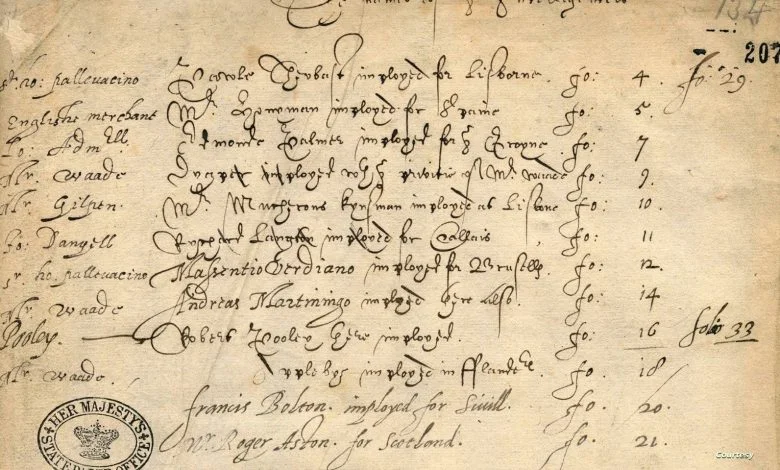 134
207
Sr. ho: pallevacino Pawle Theobast imployed for Lisborne. fo: 4. fo: 29.
Englishe merchant Mr. Honyman imployed for Spaine fo: 5.
Lo: Admll. Edmonde Palmer imployed for ye Groyne fo: 7
Mr. Waade imployed Mr. Waade fo: 9.
Mr. Gilpen. Mr. kynsman imployed at Lisbone fo: 10.
fo: Dangell Rychard Langton imployed for Callais fo: 11
Sr ho: pallevacino Massentio Verdiano imployed for Brusells fo: 12.
Mr. Waade Andreas Martiningo imployed here also. fo: 14
Pooley. Robert Pooley here imployed. fo: 16 folio 33
Mr. Waade. imployed in fflanders fo: 18
francis Bolton. imployed for Sivill. fo. 20.
Mr. Roger Aston. for Scotland. fo. 21.
HER MAJESTYS
STATE PAPER OFFICE
Courtesy